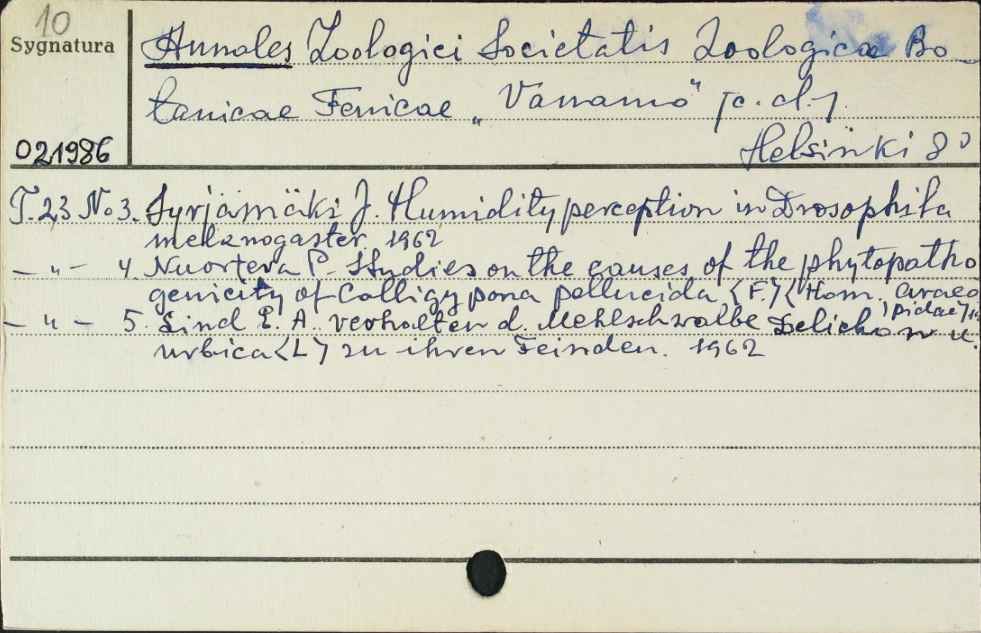 10
Sygnatura
021986
Annales Zoologici Societatis Zoologicae Bo-
tanicae Fenicae „Vanamo" [c.d.]
Helsinki 8°
T. 23 No 3. Syrjämäki J. Humidity perception in Drosophila
melanogaster. 1962
- „ - 4. Nuorteva P. Studies on the causes of the phytopatho
genicity of Calligypona pellucida <F.> <Hom. Araeo
pidae>
- „ - 5. Lind E. A. Verhalten d. Mehlschwalbe Delicho
urbica <L> zu ihren Feinden. 1962